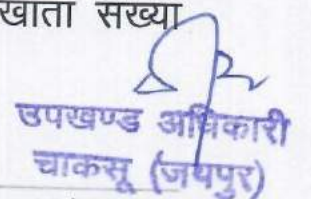 खाता सख्या
उपखण्ड अधिकारी
चाकसू (जयपुर)